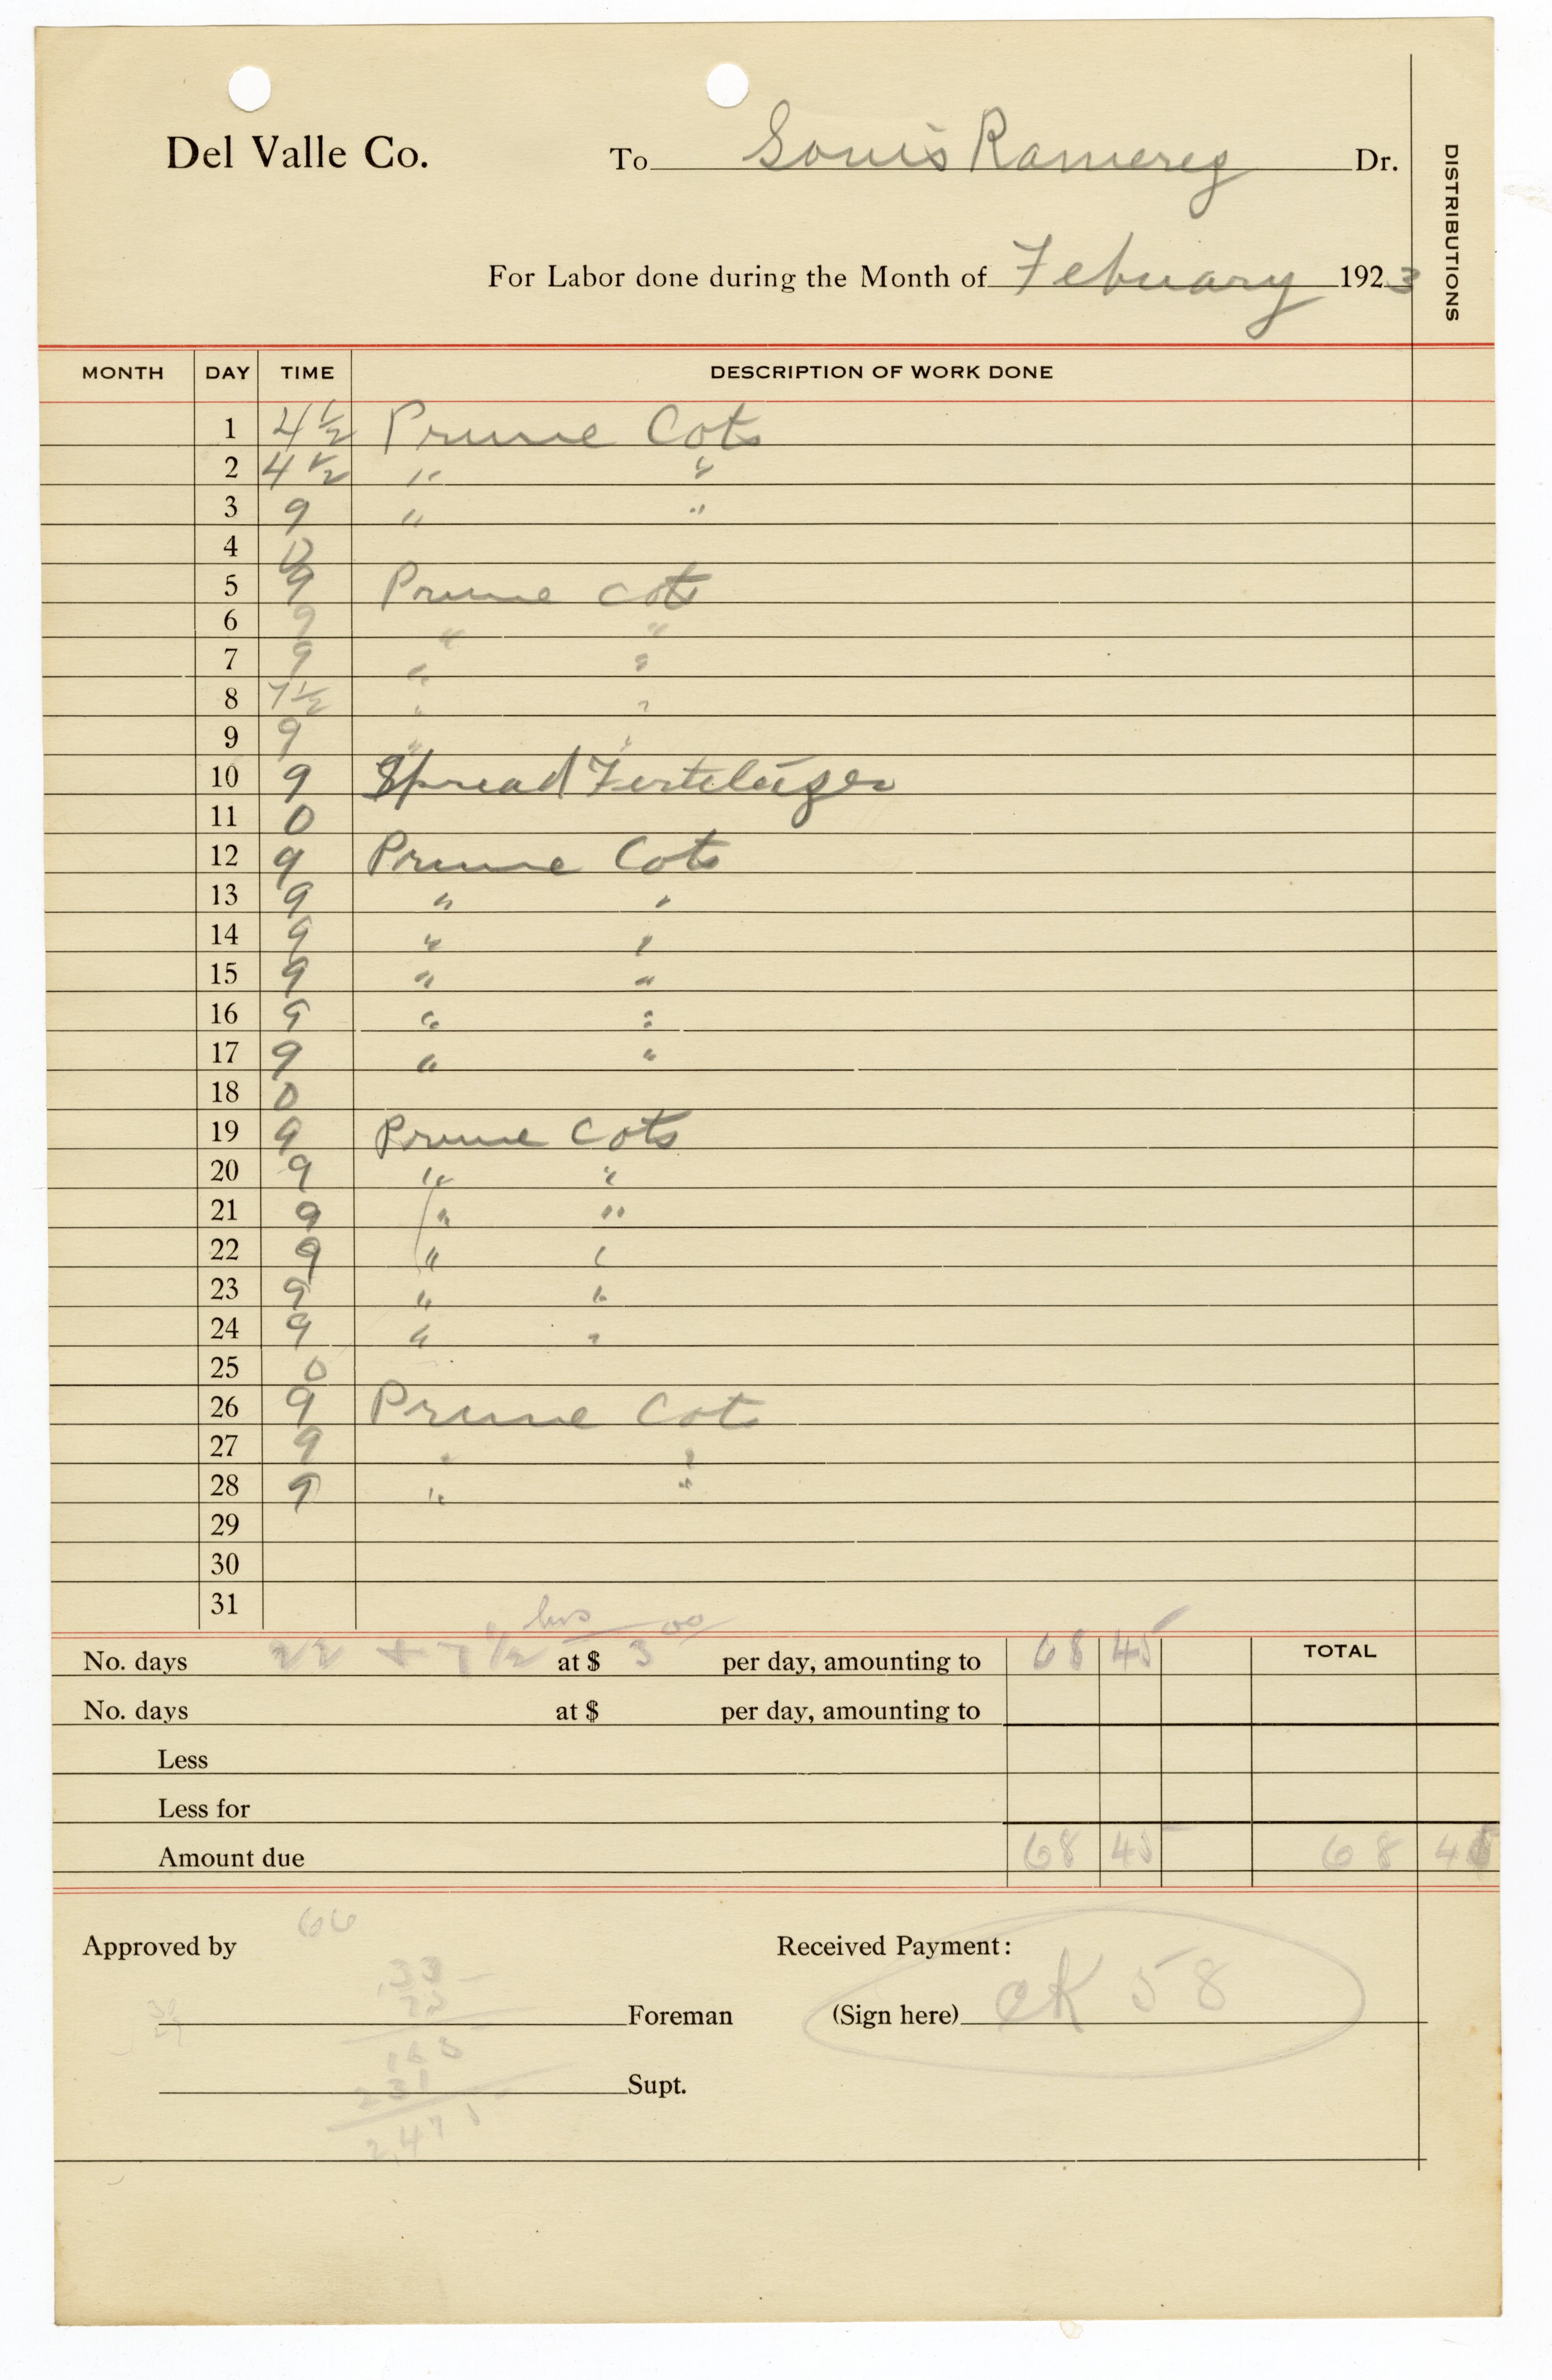 Del Valle Co. To Louis Ramereg Dr.
DISTRIBUTIONS
For Labor done during the Month of Febuary 1923
MONTH DAY TIME DESCRIPTION OF WORK DONE
1 4 1/2 Prune Cots
2 4 1/2 " "
3 9 " "
4 0
5 9 Prune cots
6 9 " "
7 9 " "
8 7 1/2 " "
9 9 " "
10 9 Spread Fertelizer
11 0
12 9 Prune Cots
13 9 " "
14 9 " "
15 9 " "
16 9 " "
17 9 " "
18 0
19 9 Prune Cots
20 9 " "
21 9 " "
22 9 " "
23 9 " "
24 9 " "
25 0
26 9 Prune Cots
27 9 " "
28 9 " "
29
30
31
No. days 22 + 7 1/2 hrs at $ 3 00 per day, amounting to 68 45 TOTAL
No. days at $ per day, amounting to
Less
Less for
Amount due 68 45 68 45
66
Approved by Received Payment:
.33
22
Foreman (Sign here) CK 58
165
231
Supt.
2,475